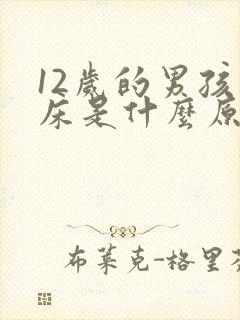 12歲的男孩
床是什麼原
布萊克-格里芬